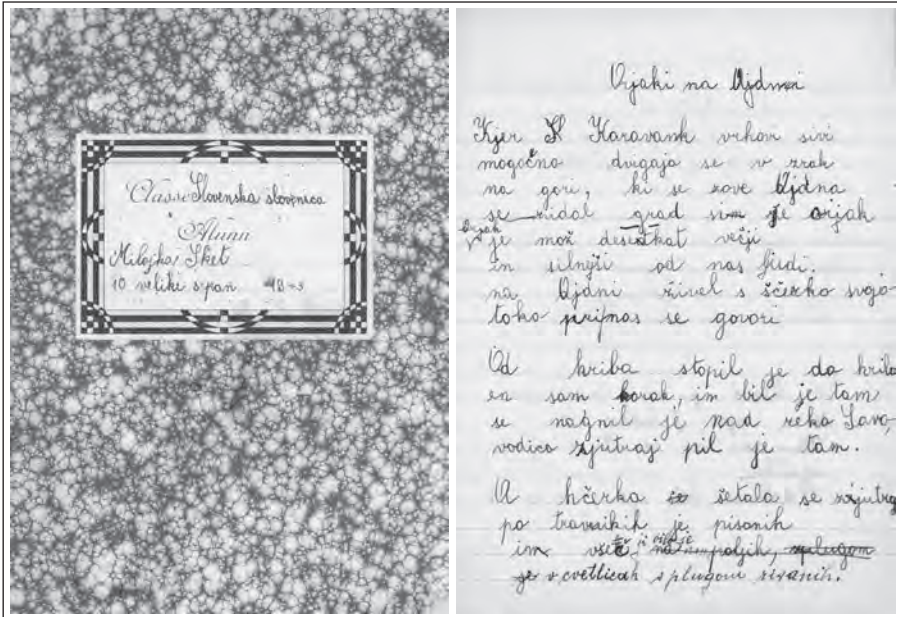 Classe Slovenska slovnica
Alunn
Milojka Sket
10 veliki srpan 48-3
Orjaki na Ajdni
Kjer Karavank vrhovi sivi
mogočno dvigajo se v zrak
na gori, ki se zove Ajdna
se zidal grad si je orjak
Orjak
je mož desetkat večji
in silnejši od nas ljudi.
na Ajdni živel s ščerko svojo
tako pri nas se govori
Od hriba stopil je do hriba
en sam korak, in bil je tam
se nagnil je nad reko Savo,
vodico zjutraj pil je tam.
A hčerka šetala se zjutraj
po travnikih je pisanih
in všeč ji bilo je na poljih, splugom
je v cvetlicah s plugom zoranih.